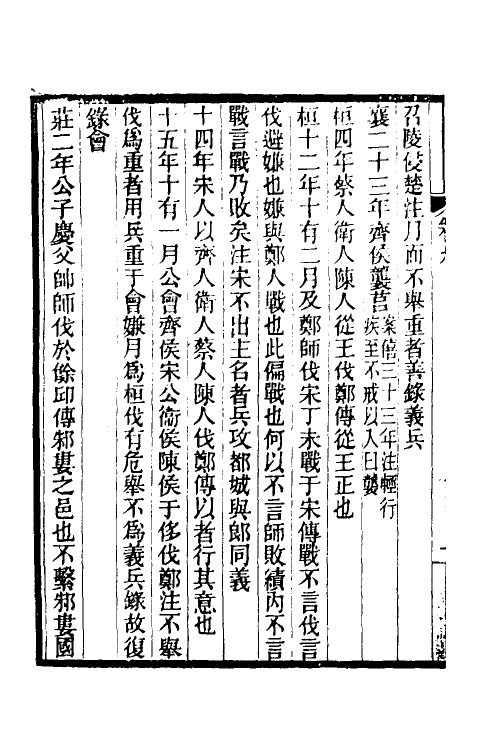 召陵侵楚注月而不舉重者善錄義兵
襄二十三年齊侯襲莒案僖三十三年注輕行疾至不戒以入曰襲
桓四年蔡人衛人陳人從王伐鄭傳從王正也
桓十二年十有二月及鄭師伐宋丁未戰于宋傳戰不言伐言
伐避嫌也嫌與鄭人戰也此偏戰也何以不言師敗績內不言
戰言戰乃敗矣注宋不出主名者兵攻都城與郎同義
十四年宋人以齊人衛人蔡人陳人伐鄭傳以者行其意也
十五年十有一月公會齊侯宋公衞侯陳侯于侈伐鄭注不舉
伐爲重者用兵重于會嫌月爲桓伐有危舉不爲義兵錄故復
錄會
莊二年公子慶父帥師伐於餘邱傳邾婁之邑也不繫邾婁國